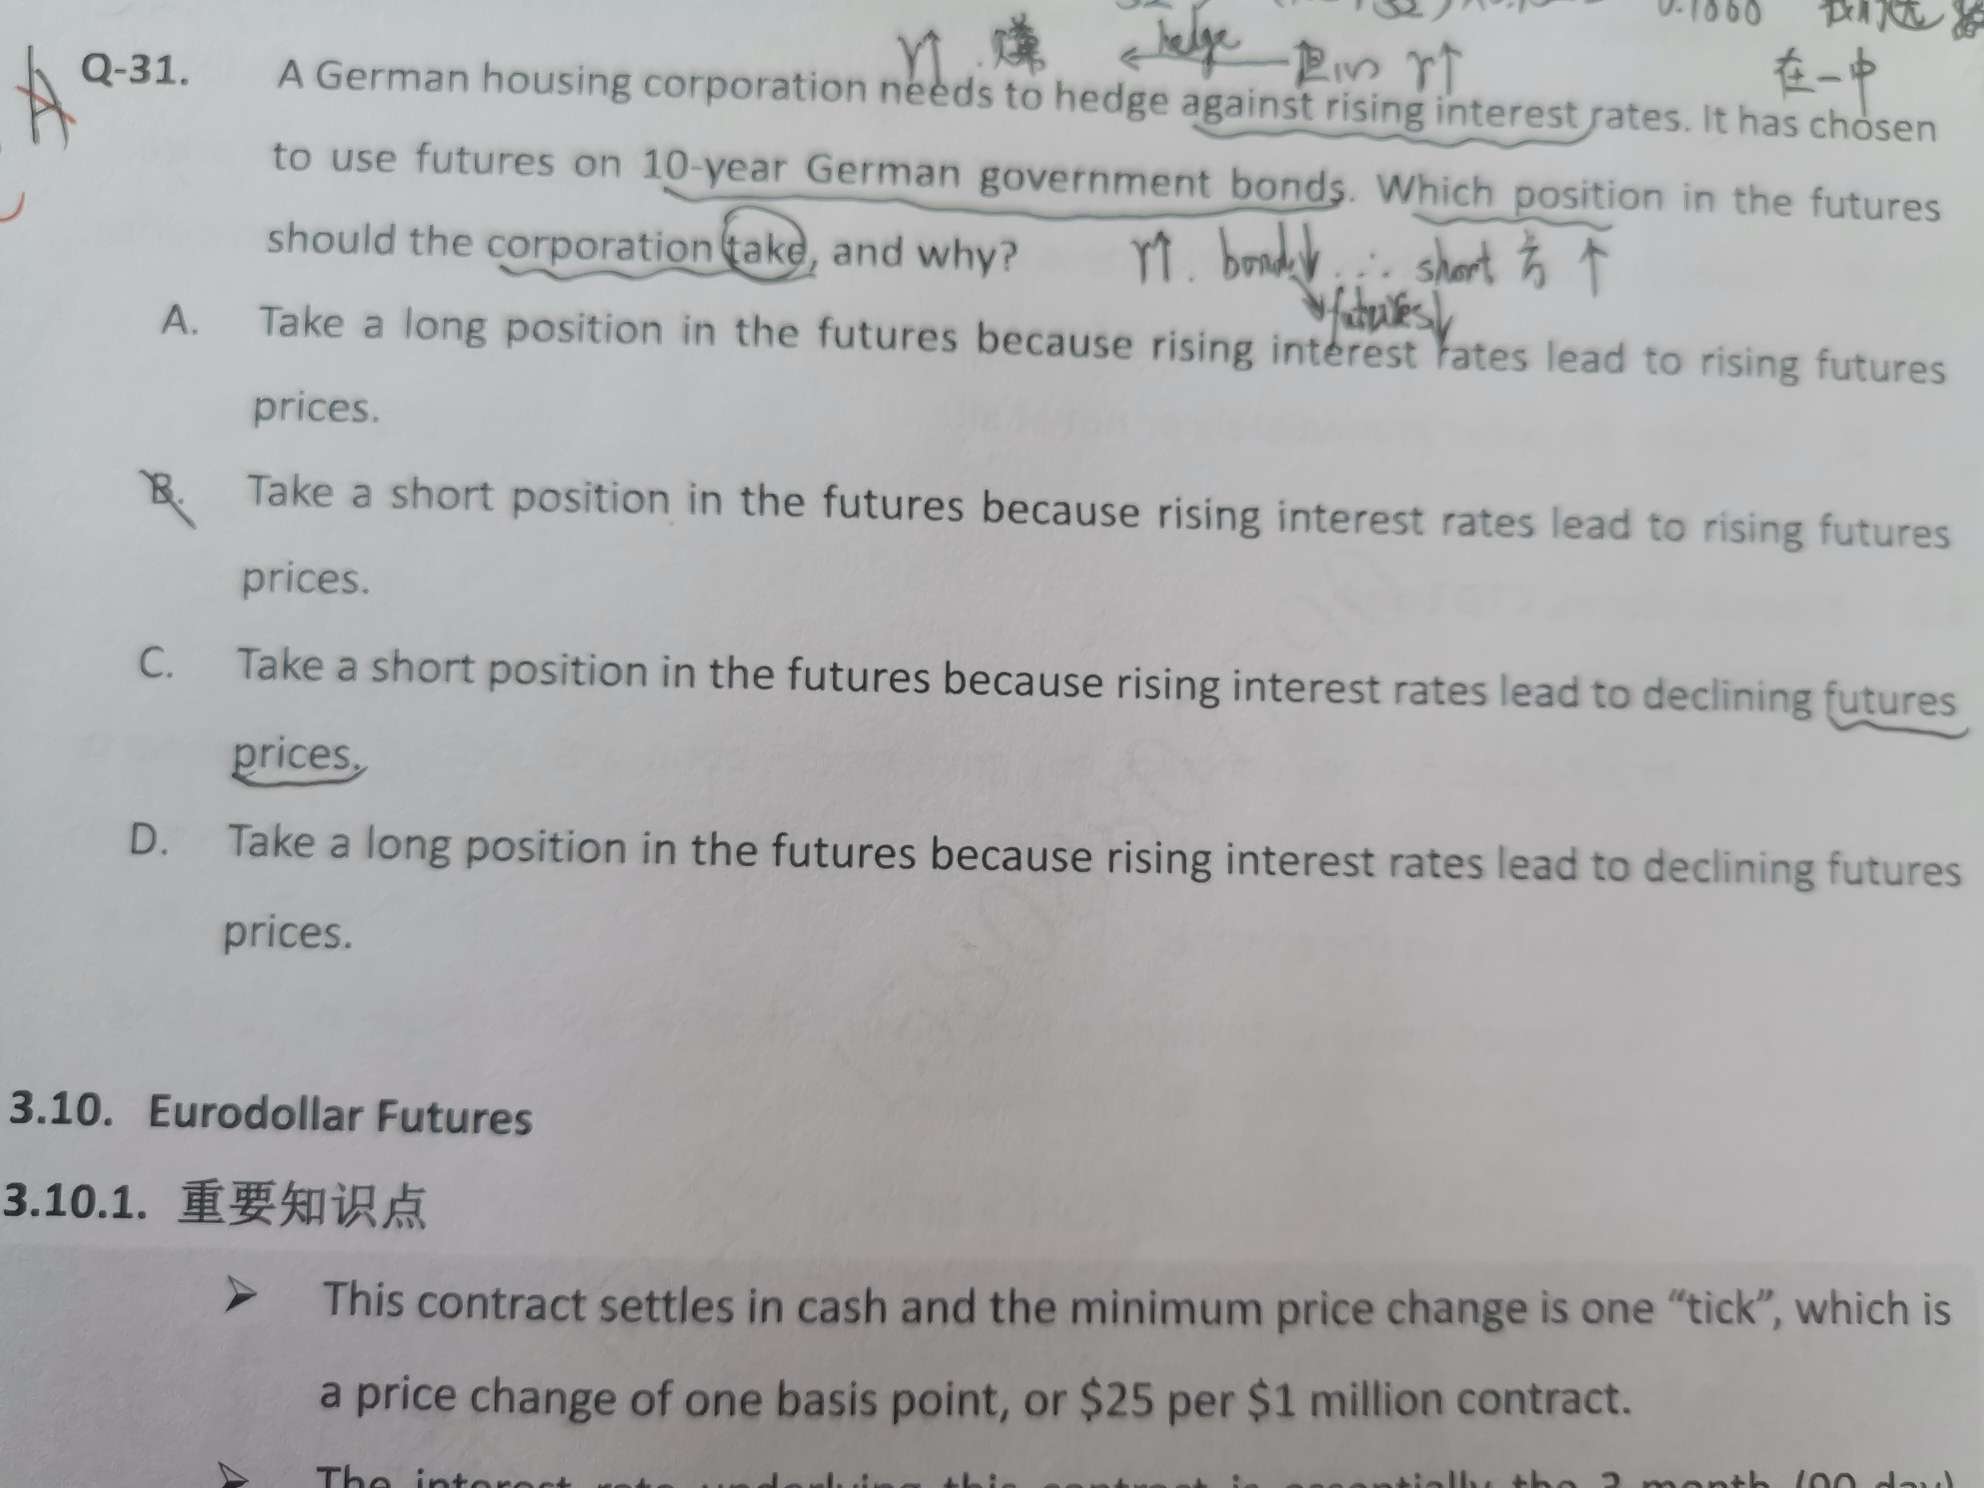 r↑ . 赚 ← hedge 担心 r↑
在一中
A
Q-31. A German housing corporation needs to hedge against rising interest rates. It has chosen
to use futures on 10-year German government bonds. Which position in the futures
should the corporation take, and why? r↑. bond↓ ∴ short 方 ↑
futures↓
A. Take a long position in the futures because rising interest rates lead to rising futures
prices.
B. Take a short position in the futures because rising interest rates lead to rising futures
prices.
C. Take a short position in the futures because rising interest rates lead to declining futures
prices.
D. Take a long position in the futures because rising interest rates lead to declining futures
prices.
3.10. Eurodollar Futures
3.10.1. 重要知识点
➢ This contract settles in cash and the minimum price change is one “tick”, which is
a price change of one basis point, or $25 per $1 million contract.
➢ The interest rate underlying this contract is essentially the 3 month (90 day)